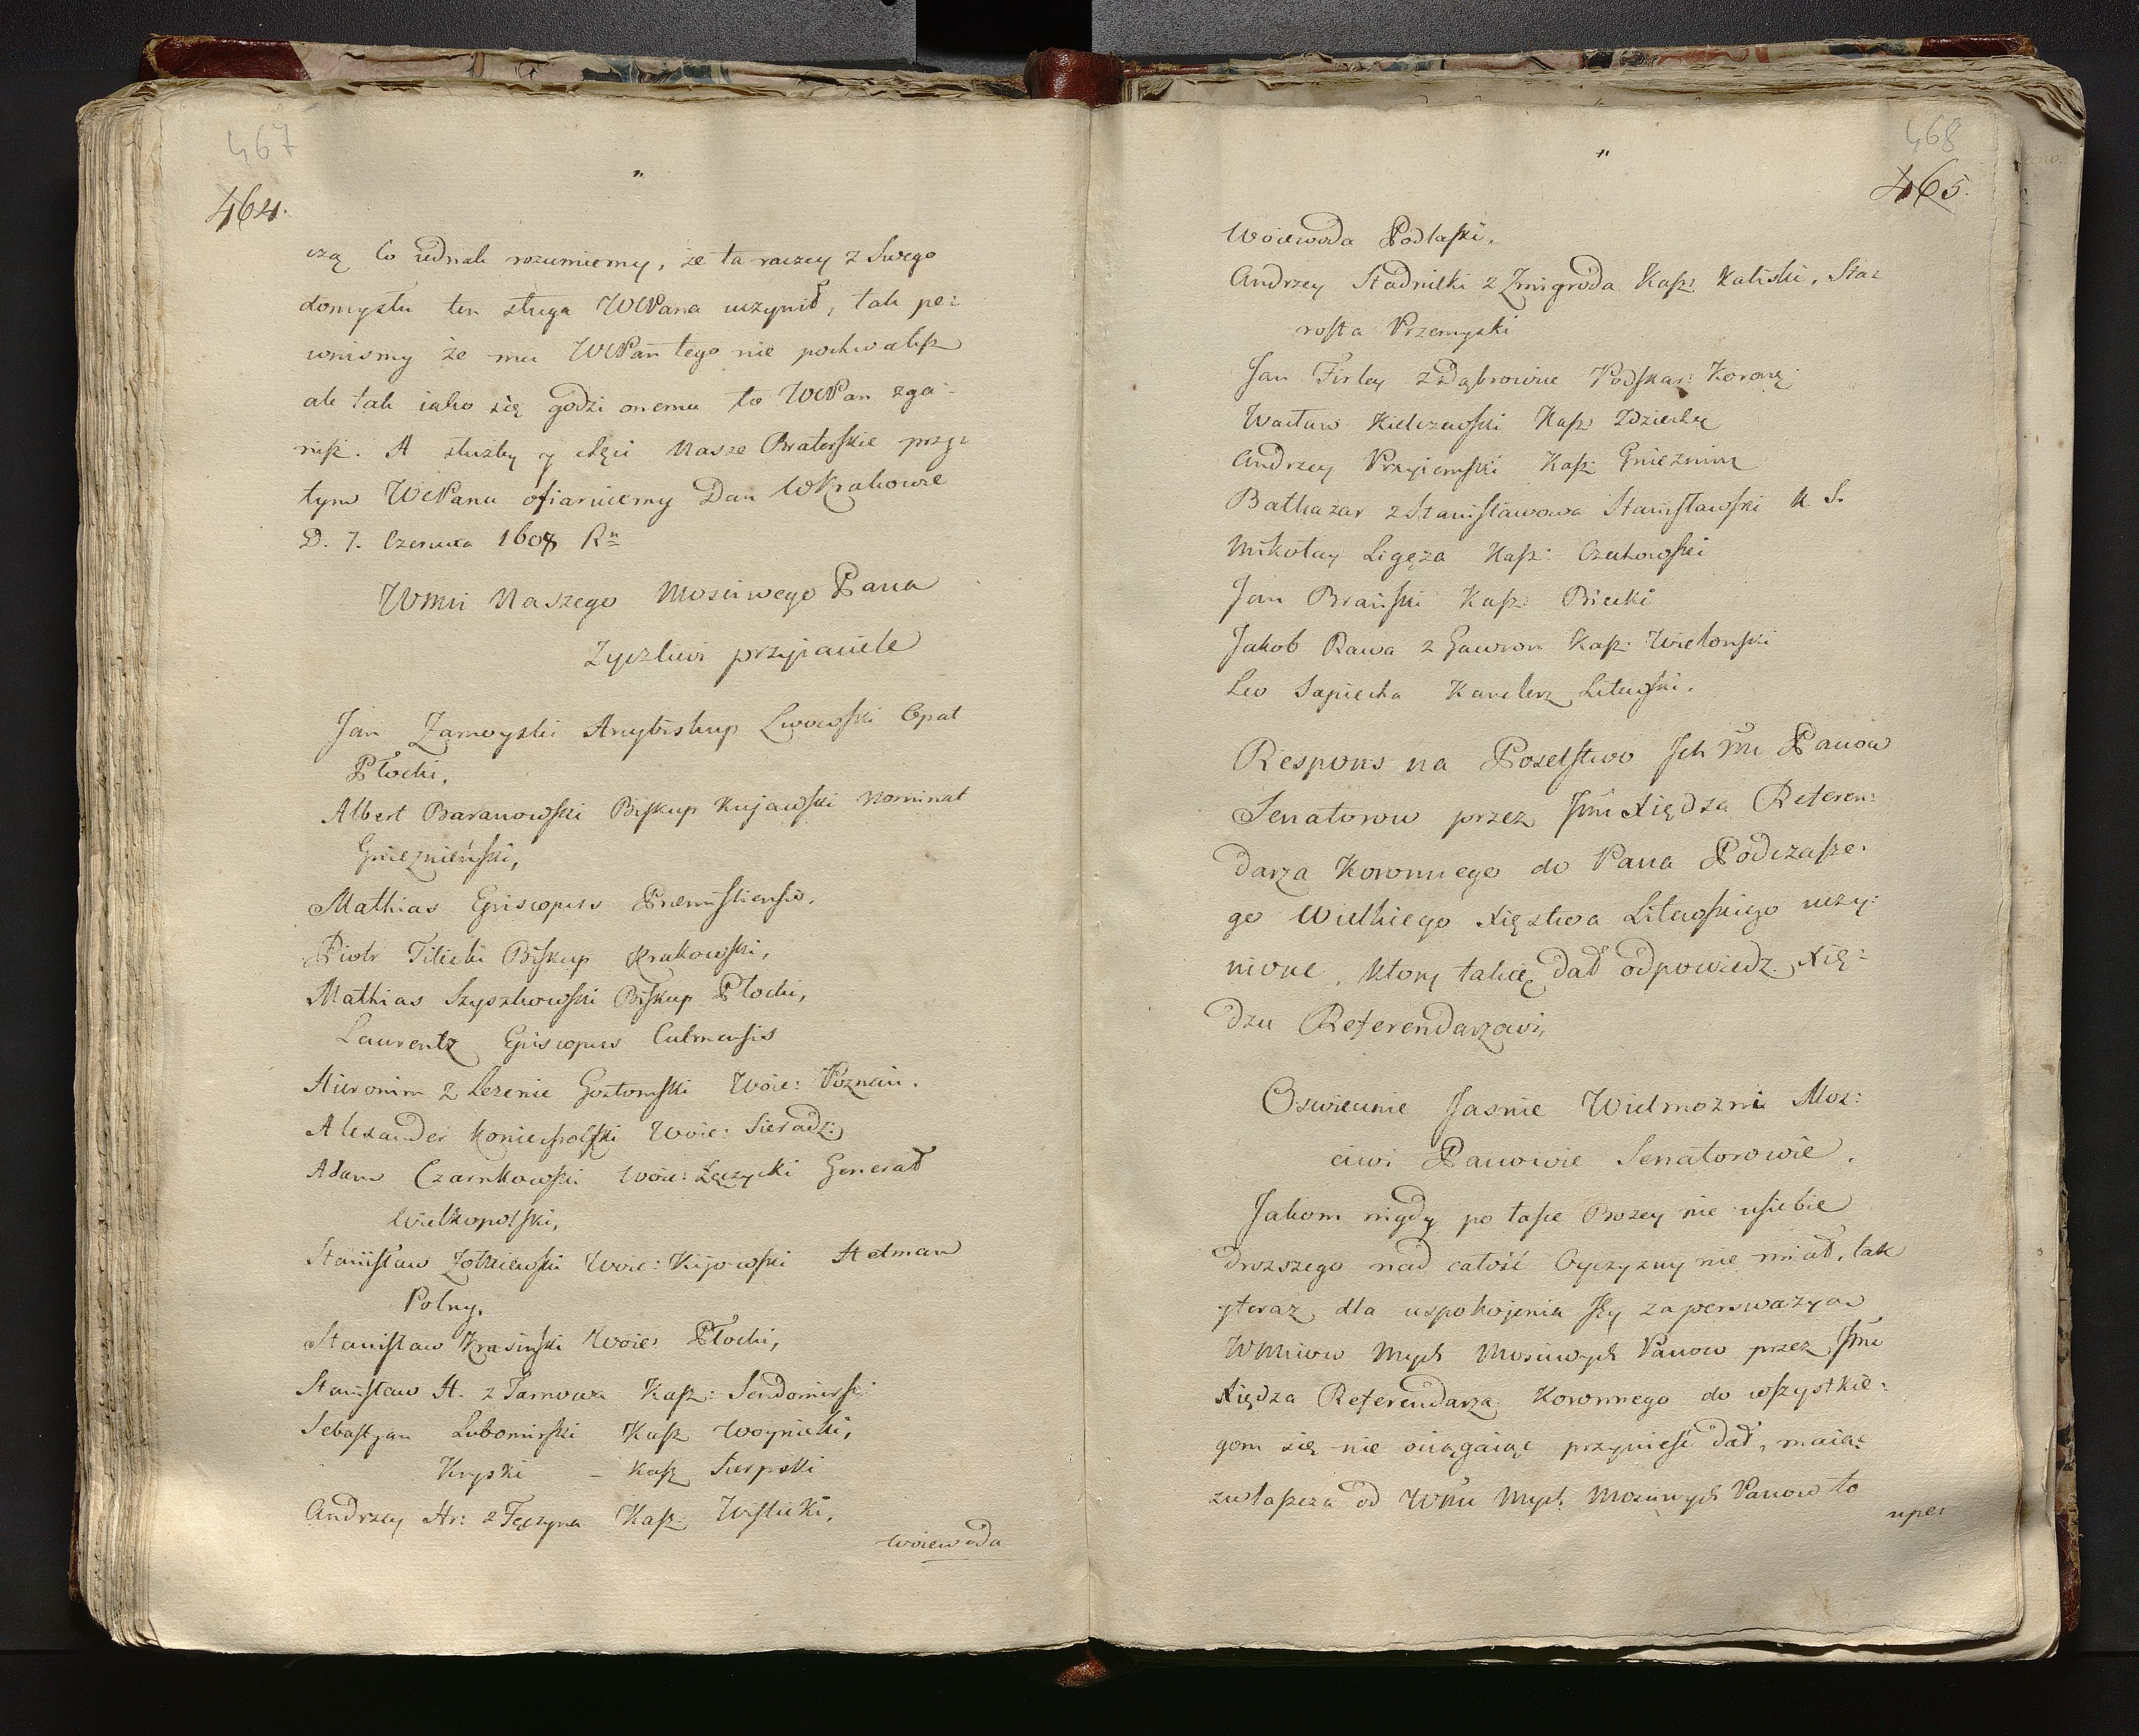 467
464.
czą co iednak rozumiemy, że ta raczey z Swego
domysłu ten sługa WMPana uczynił, tak pe:
wnismy że mu WMPan tego nie pochwalisz
ale tak iako się godzi onemu to WMPan zga:
nisz. A służby y chęci Nasze Braterskie przy
tym WMPanu ofiaruiemy Dan w Krakowie
D. 7. Czerwca 1607 Rn
WMci Naszego Mosciwego Pana
Zyczliwi przyiaciele
Jan Zamoyski Arcybiskup Lwowski Opat
Płocki,
Albert Baranowski Biskup Kujawski Nominat
Gniezninski,
Mathias Episcopus Premisliensis.
Piotr Tilicki Biskup Krakowski,
Mathias Szyszkowski Biskup Płocki,
Laurentz Episcopus Culmensis
Hieronim z Lezenic Gostomski Woie: Poznań.
Alexander Koniecpolski Woie: Sieradz:
Adam Czarnkowski Woie: Łęczycki Generał
Wielkopolski,
Stanisław Zołkiewski Woie: Kijowski Hetman
Polny,
Stanisław Krasinski Woie: Płocki,
Stanisław H. z Tarnowa Kasz: Sendomirski
Sebastyan Lubomirski Kasz Woynicki,
Kryski – Kasz Sierpski
Andrzey Hr: z Tęczyna Kasz. Wislicki,
Woiewoda
468
465.
Woiewoda Podlaski.
Andrzey Stadnicki z Zmigroda Kasz: Kaliski, Sta:
rosta Przemyski
Jan Firley z Dąbrowice Podskar: Koronę
Wacław Kiełczewski Kasz Zdziechę
Andrzey Przyiemski Kasz: Gnieznins
Balthazar z Stanisławowa Stanisławski K S.
Mikołay Ligęza Kasz: Czchowski
Jan Branski Kasz: Biecki
Jakob Rawa z Gawron Kasz: Wielonski
Leo Sapiecha Kanclerz Litewski.
Respons na Poselstwo Ich Mci Panow
Senatorow przez Jmci Xiędza Referen:
darza Koronnego do Pana Podczasze:
go Wielkiego Xięstwa Litewskiego uczy:
nione, ktory takię dał odpowiedz Xię:
dzu Referendarzowi,
Oswiecenie Jasnie Wielmozni Mos:
ciwi Panowie Senatorowie.
Jakom nigdy po łasce Bozey nie u siebie
drozszego nad całość Oyczyzny nie miał, tak
y teraz dla uspokojenia Jey za perswazyą
WMciow Mych Mosciwych Panow przez Jmci
Xiędza Referendarza Koronnego do wszystkie:
gom się nie ociągaiąc przywieść dał, maiąc
zwłaszcza od WMci Mych Mosciwych Panow to
upe: